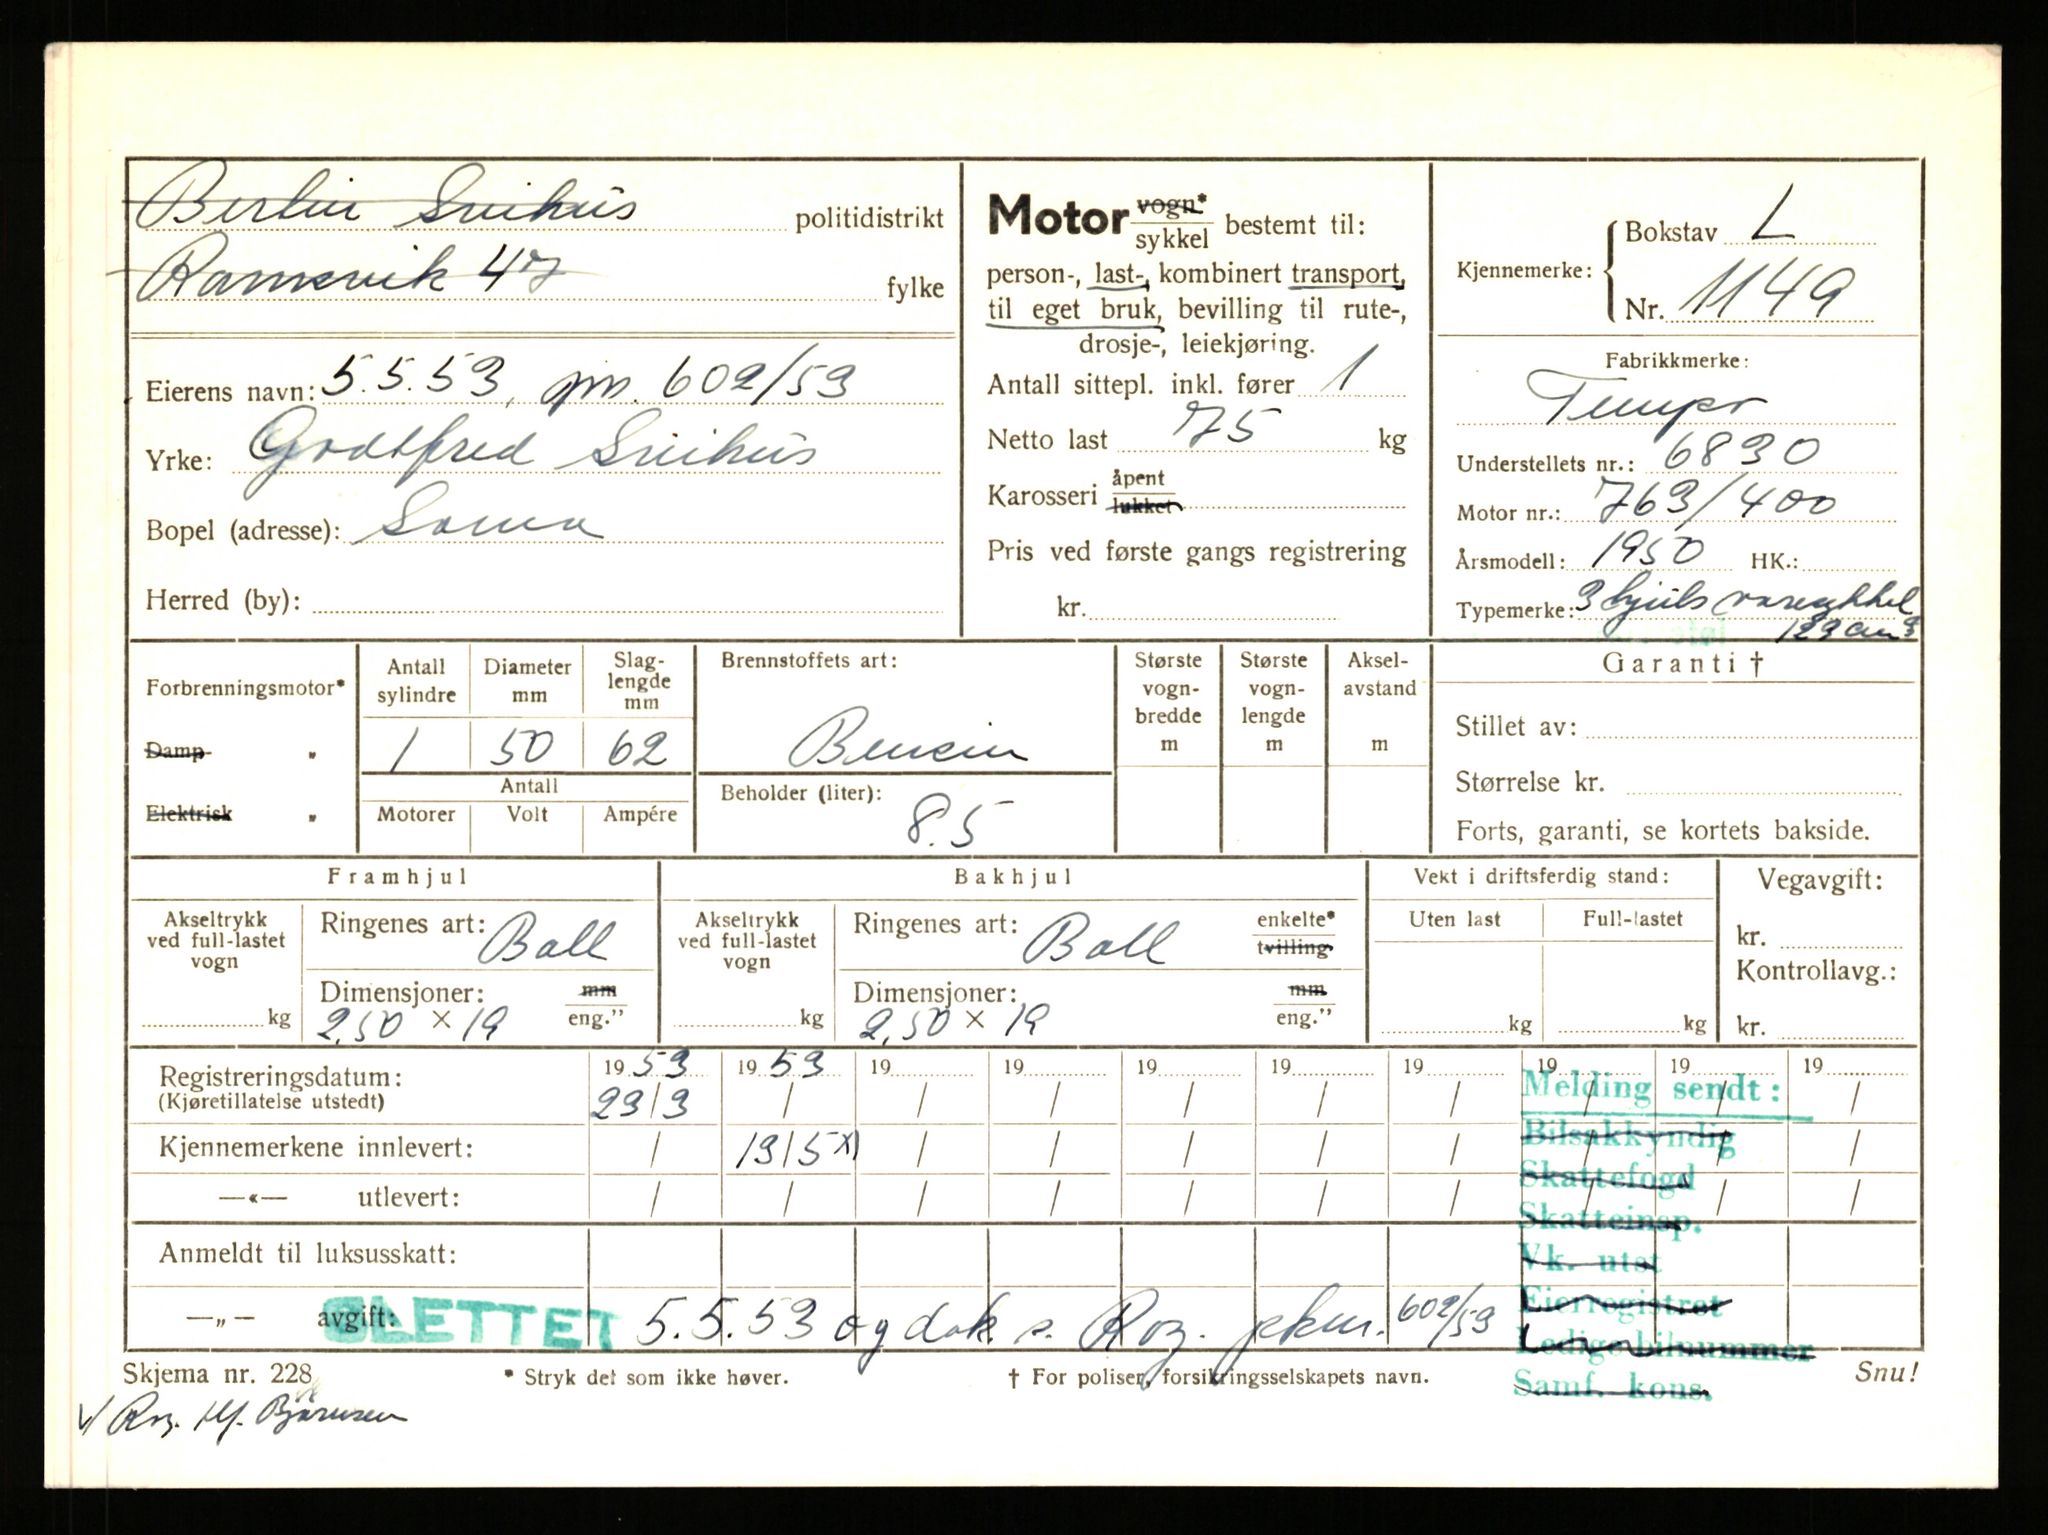 Berlin Snihus politidistrikt
Ramsvik 47 fylke
Eierens navn: 5.5.53, jm. 602/53
Yrke: Godtfred Snihus
Bopel (adresse): Soma
Herred (by):
Motor vogn* sykkel bestemt til:
person-, last-, kombinert transport,
til eget bruk, bevilling til rute-,
drosje-, leiekjøring.
Antall sittepl. inkl. fører 1
Netto last 75 kg
Karosseri åpent lukket
Pris ved første gangs registrering
kr.
Kjennemerke: Bokstav L
Nr. 1149
Fabrikkmerke:
Tempo
Understellets nr.: 6830
Motor nr.: 763/400
Årsmodell: 1950 HK.:
Typemerke: 3 hjuls varesykkel
123 cm3
Forbrenningsmotor*
Damp "
Elektrisk "
Antall sylindre Diameter mm Slag-lengde mm
1 50 62
Antall
Motorer Volt Ampére
Brennstoffets art:
Bensin
Beholder (liter):
8.5
Største vogn-bredde m
Største vogn-lengde m
Aksel-avstand m
Garanti †
Stillet av:
Størrelse kr.
Forts, garanti, se kortets bakside.
Framhjul
Akseltrykk ved full-lastet vogn
kg
Ringenes art: Ball
Dimensjoner: mm
2,50 x 19 eng."
Bakhjul
Akseltrykk ved full-lastet vogn
kg
Ringenes art: Ball enkelte* tvilling
Dimensjoner: mm
2,50 x 19 eng."
Vekt i driftsferdig stand:
Uten last Full-lastet
kg kg
Vegavgift:
kr.
Kontrollavg.:
kr.
19 53 19 53 19 19 19 19 19 19 19 19
Registreringsdatum: 23/3 / / / / / / / / /
(Kjøretillatelse utstedt)
Kjennemerkene innlevert: / 13/5 x) / / / / / / / /
—«— utlevert: / / / / / / / / / /
Anmeldt til luksusskatt:
—„— avgift:
SLETTET 5.5.53 og dok s. Rog. pkm. 602/53
Melding sendt:
Bilsakkyndig
Skattefogd
Skatteinsp.
Vk. utst
Eierregistret
Ledige bilnummer
Samf. kons.
Skjema nr. 228 * Stryk det som ikke høver. † For poliser, forsikringsselskapets navn. Snu!
Rog. Bjørnsen